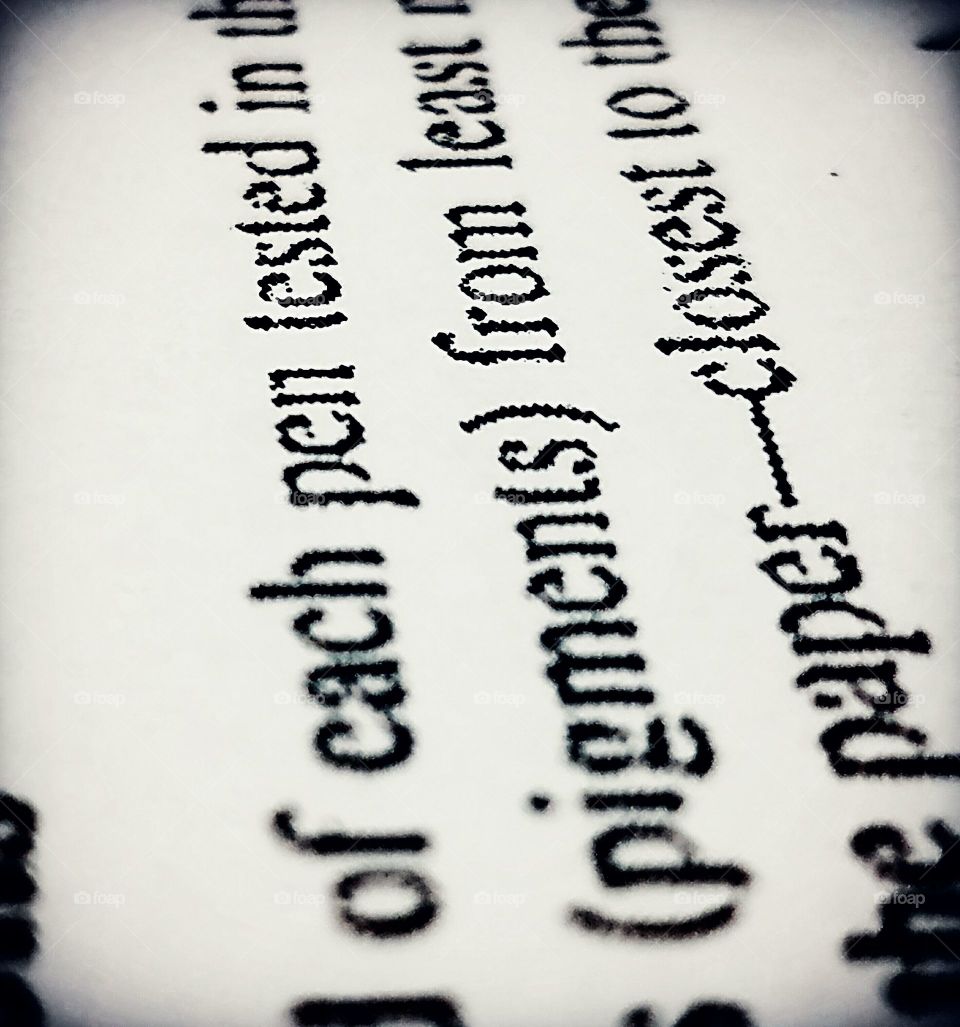 of each pen tested in
(pigments) from least
the paper—closest to the